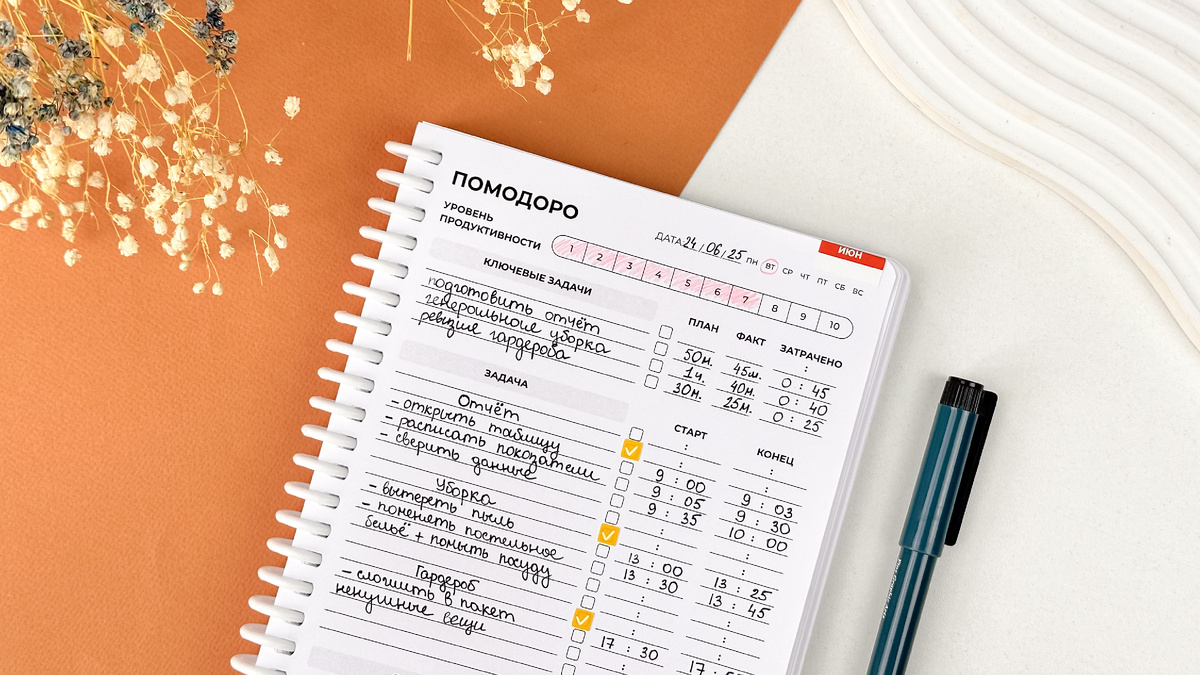 ПОМОДОРО
ИЮН
УРОВЕНЬ
ПРОДУКТИВНОСТИ
1 2 3 4 5 6 7 8 9 10
ДАТА 24 / 06 / 25 ПН ВТ СР ЧТ ПТ СБ ВС
КЛЮЧЕВЫЕ ЗАДАЧИ ПЛАН ФАКТ ЗАТРАЧЕНО
:
подготовить отчёт 50м. 45м. 0 : 45
генеральная уборка 1ч. 40м. 0 : 40
ревизие гардероба 30м. 25м. 0 : 25
ЗАДАЧА СТАРТ КОНЕЦ
: :
Отчёт : :
- открыть таблицу 9 : 00 9 : 03
- расписать показатели 9 : 05 9 : 30
- сверить данные 9 : 35 10 : 00
: :
Уборка : :
- вытереть пыль 13 : 00 13 : 25
- поменять постельное 13 : 30 13 : 45
бельё + помыть посуду : :
: :
Гардероб : :
- сложить в пакет 17 : 30 17 :
ненужные вещи :